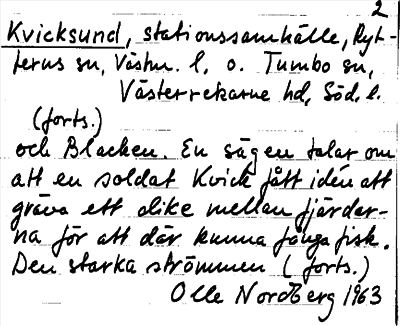 2
Kvicksund, stationssamhälle, Ryt-
terns sn, Västm. l. o. Tumbo sn,
Västerrekarne hd, Söd. l.
(forts.)
och Blacken. En sägen talar om
att en soldat Kvick fått idén att
gräva ett dike mellan fjärdar-
na för att där kunna fånga fisk.
Den starka strömmen (forts.)
Olle Nordberg 1963